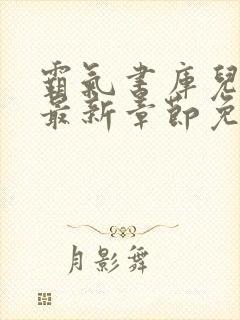 霸氣書庫兒
最新章節免
月影舞